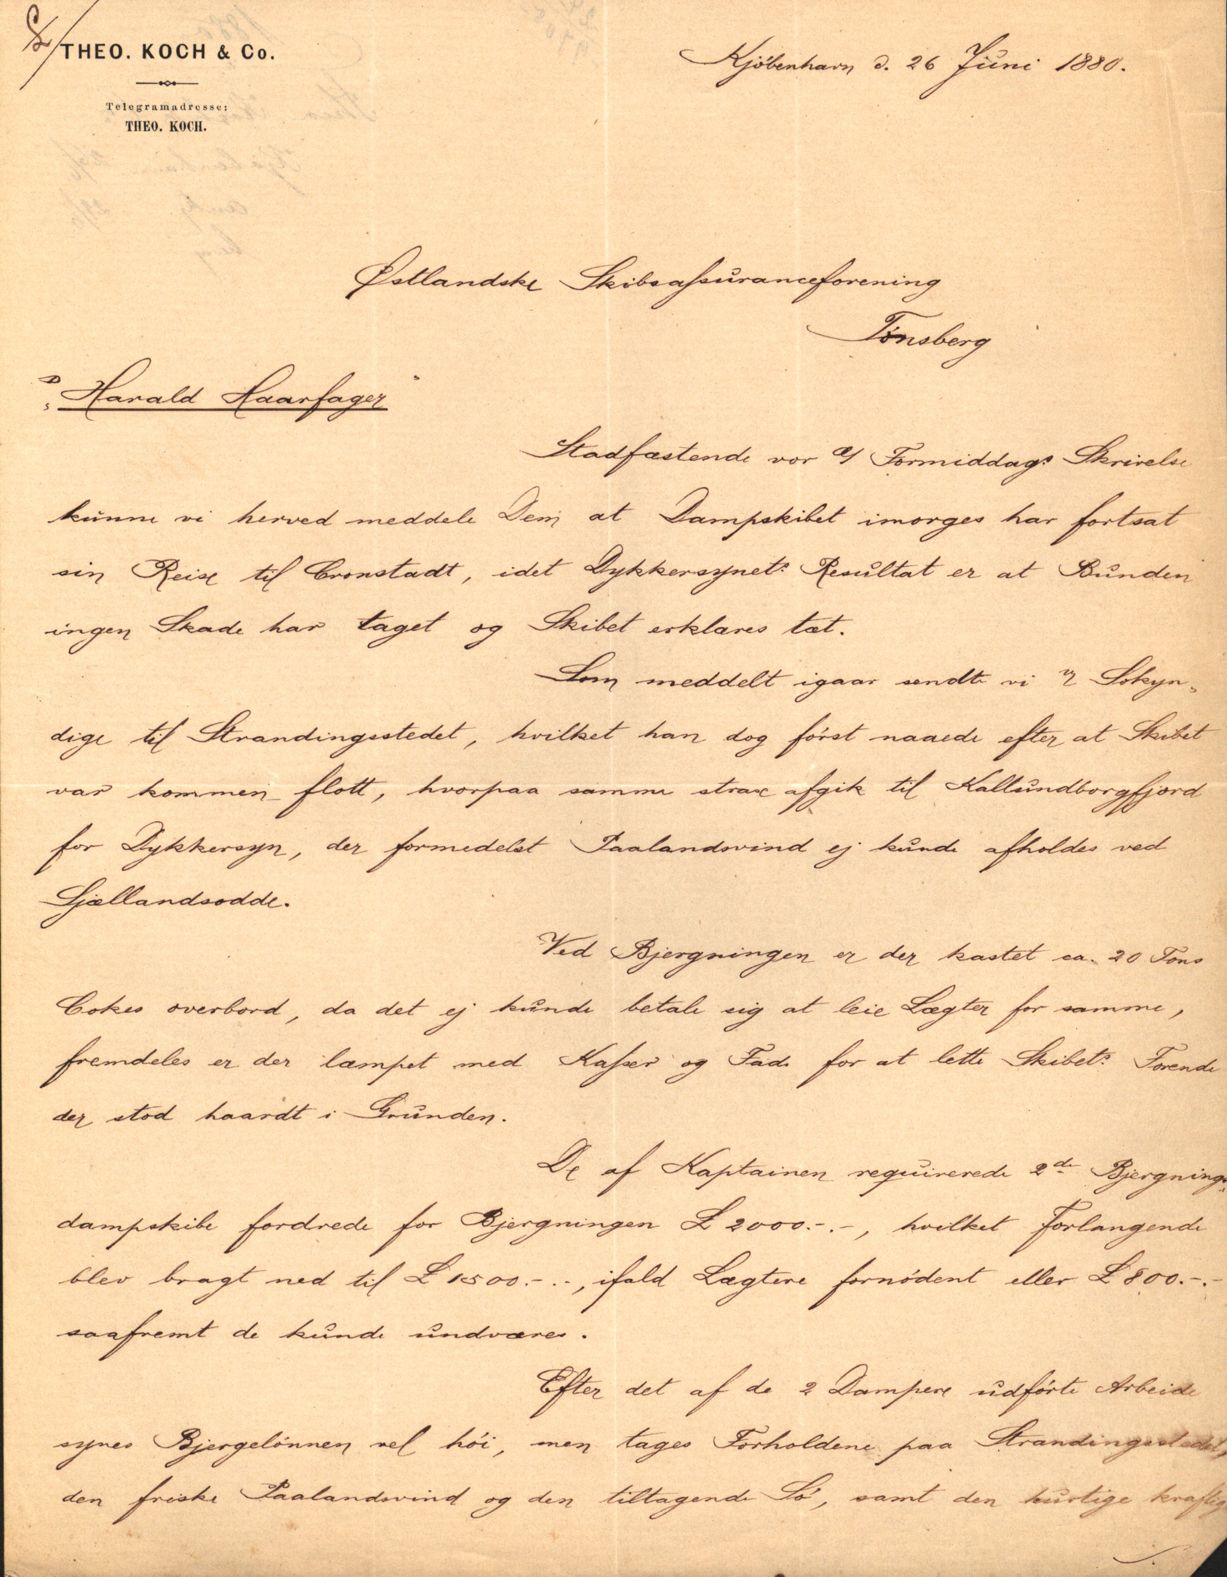 THEO. KOCH & Co.
Telegramadresse:
THEO. KOCH.
Kjöbenhavn d. 26 Juni 1880.
Østlandske Skibsassuranceforening
Tønsberg
„Harald Haarfager"
Stadfæstende vor a/ Formiddags Skrivelse
kunne vi herved meddele Dem at Dampskibet imorges har fortsat
sin Reise til Cronstadt, idet Dykkersynets Resultat er at Bunden
ingen Skade har taget og Skibet erklæres tæt.
Som meddelt igaar sendte vi Sökyn-
dige til Strandingsstedet, hvilket han dog först naaede efter at Skibet
var kommen flott, hvorpaa samme strax afgik til Kallundborgfjord
for Dykkersyn, der formedelst Paalandsvind ej kunde afholdes ved
Sjællandsodde.
Ved Bjergningen er der kastet ca. 20 Tons
Cokes overbord, da det ej kunde betale sig at leie Lægter for samme,
fremdeles er der læmpet med Kasser og Fade for at lette Skibets Forende
der stod haardt i Grunden.
De af Kaptainen requirerede 2de Bjergnings-
dampskibe fordrede for Bjergningen £ 2000.-.-, hvilket Forlangende
blev bragt ned til £ 1500.-.-, ifald Lægtere fornödent eller £ 800.-.-
saafremt de kunde undværes.
Efter det af de 2 Dampere udförte Arbeide
synes Bjergelönnen vel höi, men tages Forholdene paa Strandingsstedet,
den friske Paalandsvind og den tiltagende Sö, samt den hurtige kraftige